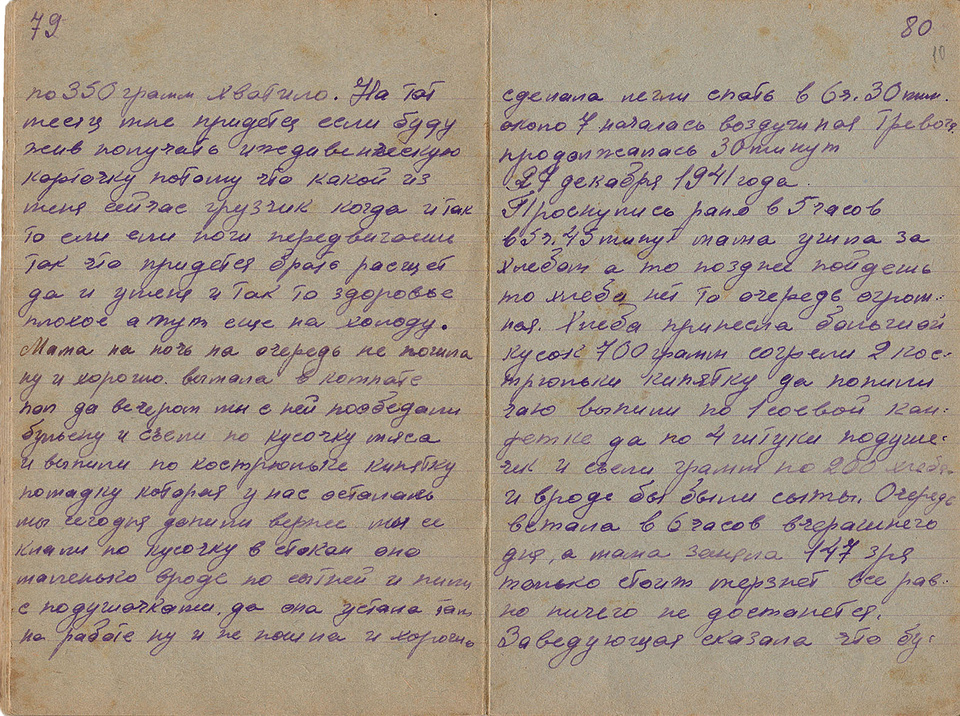 79
по 350 грамм хватило. На тот
месяц мне придется если буду
жив получать иждивенческую
карточку потому что какой из
меня сейчас грузчик когда и так
то ели ели ноги передвигаешь
так что придется брать расщет
да и уменя и так то здоровье
плохое а тут еще на холоду.
Мама на ночь на очередь не пошла
ну и хорошо.
да вечером мы с ней пообедали
бульену и съели по кусочку мяса
и выпили по кострюльке кипятку
помадку которая у нас осталась
мы сегодня допили вернее мы ее
клали по кусочку в стакан она
маленько вроде по сытней и пили
с подушачками. да она устала там
на работе ну и не пошла и хорошо
80
10
сделала легли спать в 6ч. 30 мин.
около 7 началась воздушная тревога
продолжалась 30 минут
27 декабря 1941 года.
Проснулись рано в 5 часов
в 5ч. 45 минут мама ушла за
хлебом а то поздней пойдешь
то хлеба нет то очередь огром-
ная. Хлеба принесла большой
кусок 700 грамм согрели 2 кос-
трюльки кипятку да попили
чаю выпили по 1 соевой кон-
фетке да по 4 штуки подуше-
чек и съели грамм по 200 хлеба
и вроде бы были сыты. Очередь
встала в 6 часов вчерашнего
дня, а мама заняла 147 зря
только стоит мерзнет все рав-
но ничего не достанется.
Заведующая сказала что бу-